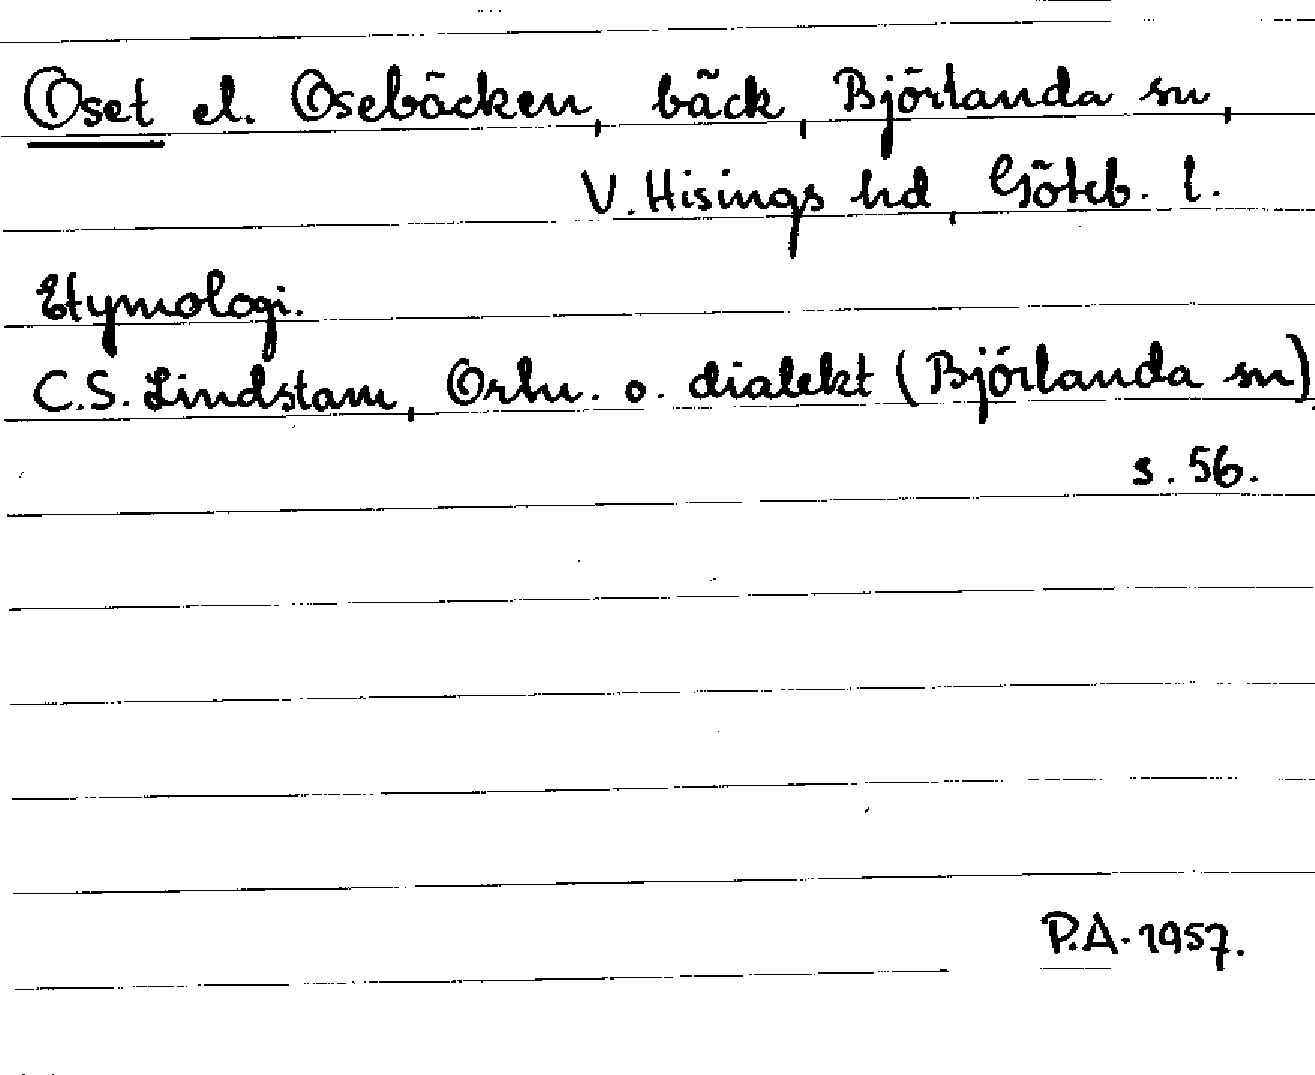 Oset el. Osebäcken, bäck, Björlanda sn,
V. Hisings hd, Göteb. l.
Etymologi.
C.S. Lindstam, Ortn. o. dialekt (Björlanda sn)
s. 56.
P.A. 1957.